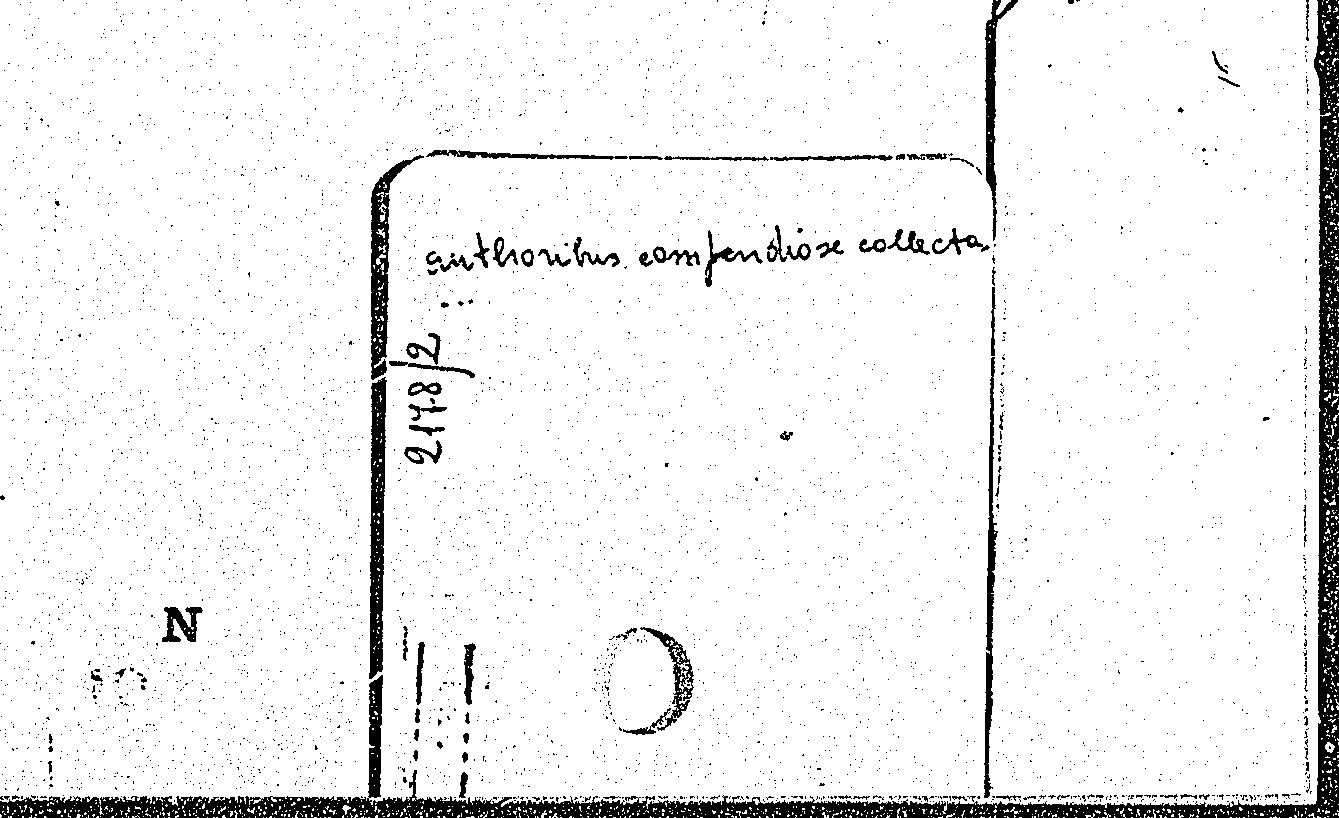 authoribus compendiose collecta.
2178/2
N